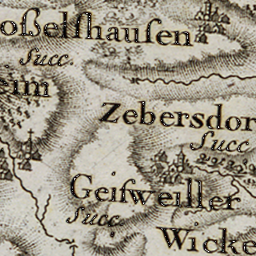 oßelſhauſen
ſucc.
eim
Zebersdor
ſucc
Geiſweiller
ſucc
Wicke